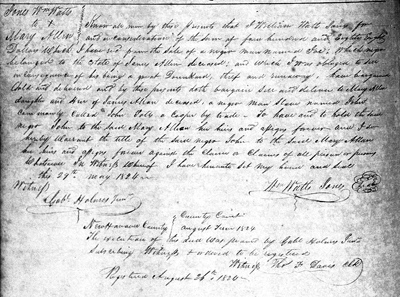 Jones Wm Watts
to
Mary Allen
Know all men by these presents that I William Watts Jones for
and in consideration of the sum of four hundred and Eighty Eight
Dollars which I have rec'd from the sale of a negro man named Jac; which negro
belonged to the Estate of James Allen deceased, and which I was obliged to sell
in consequence of his being a great Drunkard, thief and runaway, have bargained
Sold and delivered and by these presents doth bargain Sell and deliver to Mary Allen
daughter and heir of James Allen deceased, a negro man Slave named John
Commonly called John Polk a Cooper by trade - To have and to hold the said
negro John to the said Mary Allen her heirs and assigns forever and I do
hereby Warrant the title of the said negro John to the said Mary Allen
her heirs and assigns forever against the claim or Claims of all person or persons
Whatsoever In Witness Whereof I have hereunto Set my hand and Seal
this 29th May 1824
Wm Watts Jones
Seal
Witness
Gabl Holmes Junr
New Hanover County
County Court
August Term 1824
The execution of this deed was proved by Gabl Holmes Junr
Subscribing Witness & ordered to be registered
Witness Thos F Davis Clk
Registered August 26th 1824